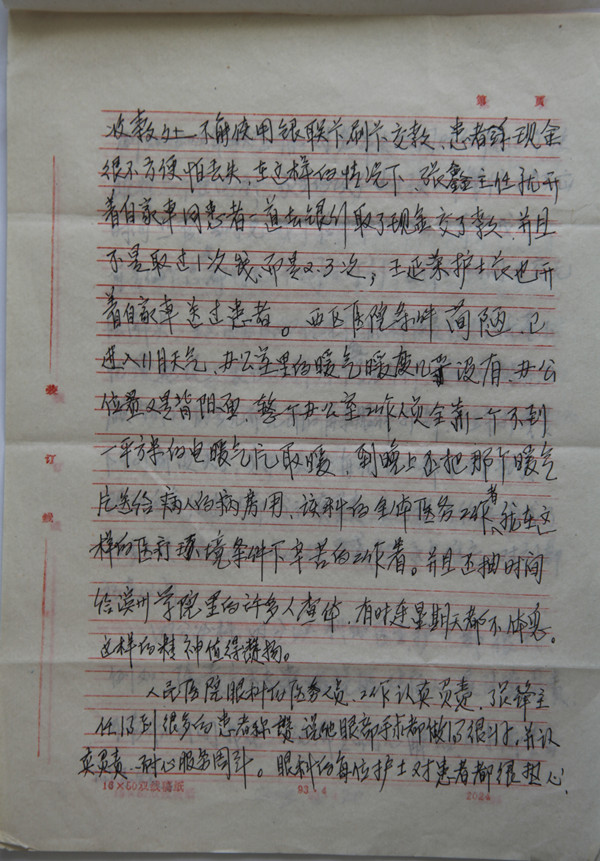 第 页
收款处 不能使用银联卡刷卡交款、患者拿现金
很不方便怕丢失、在这样的情况下、张鑫主任就开
着自家车同患者一道去银行取了现金交了款、并且
不是取过1次钱、而是2.3次；王延荣护士长也开
着自家车送过患者。西区医院条件简陋、已
进入11月天气、办公室里的暖气暖度几乎没有、办公
位置又是背阳面、整个办公室工作人员全靠一个不到
一平方米的电暖气片取暖、到晚上还把那个暖气
片送给病人的病房用、该科的全体医务工作者就在这
样的医疗环境条件下辛苦的工作着。并且还抽时间
给滨州学院里的许多人查体、有时连星期天都不休息。
这样的精神值得赞扬。
人民医院眼科的医务人员、工作认真负责、张锋主
任得到很多的患者称赞、说他眼部手术都做得很好、并认
真负责、耐心服务周到。眼科的每位护士对患者都很热心、
装
订
线
16×60双线稿纸 93.4 2024